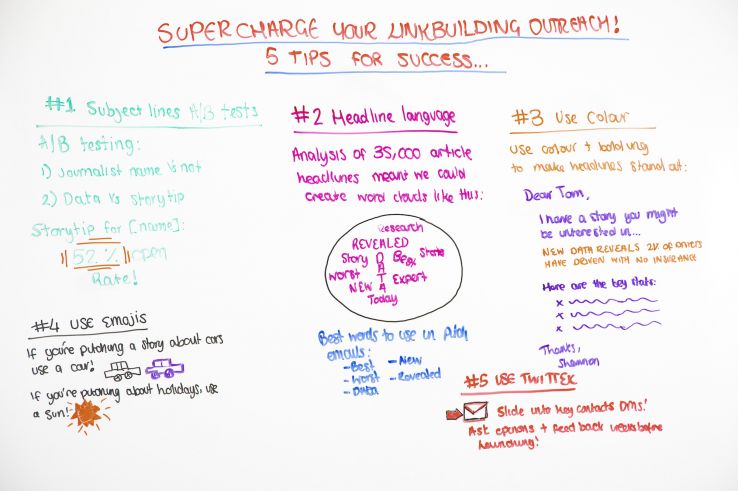 SUPERCHARGE YOUR LINKBUILDING OUTREACH!
5 TIPS FOR SUCCESS...
#1 Subject lines A/B tests
A/B testing:
1) Journalist name vs not
2) Data vs storytip
Storytip for [name]:
52% open
Rate!
#2 Headline language
Analysis of 35,000 article
headlines meant we could
create word clouds like this:
Research
REVEALED
Story
DATA
Best
State
Worst
Expert
NEW
Today
Best words to use in pitch
emails:
- Best
- New
- Worst
- Revealed
- Data
#3 Use Colour
Use colour + bolding
to make headlines stand out:
Dear Tom,
I have a story you might
be interested in...
NEW DATA REVEALS 2K OF
HAVE DRIVEN WITH NO INSURANCE
Here are the key stats:
x
x
x
Thanks,
Shannon
#4 USE EMOJIS
If you're pitching a story about cars
use a car!
If you're pitching about holidays, use
a sun!
#5 USE TWITTER
Slide into key contacts DMs!
Ask opinions + feed back weeks before
launching!